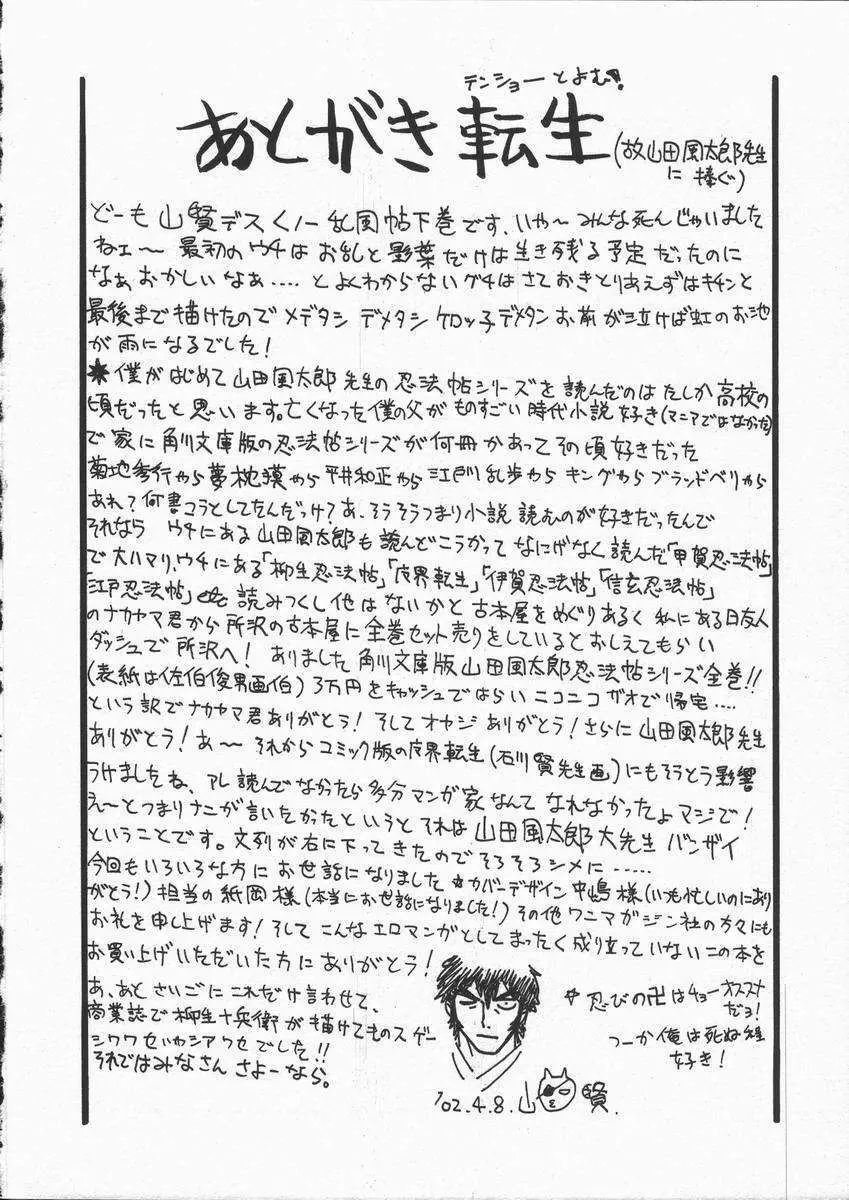 テンショーとよむ!
あとがき転生
(故山田風太郎先生
に捧ぐ)
どーも山賢デスくノ一乱風帖下巻です、いや〜みんな死んじゃいました
ねェ〜 最初のウチはお乱と影葉だけは生き残る予定だったのに
なぁおかしいなぁ....とよくわからないグチはさておきとりあえずはキチンと
最後まで描けたのでメデタシ デメタシ ケロッ子デメタン お前が泣けば虹のお池
が雨になるでした!
★僕がはじめて山田風太郎先生の忍法帖シリーズを読んだのはたしか高校の
頃だったと思います。亡くなった僕の父がものすごい時代小説好き(マニアではなかった)
で家に角川文庫版の忍法帖シリーズが何冊かあってその頃好きだった
菊地秀行やら夢枕獏やら平井和正やら江戸川乱歩やらキングやらブランドベリやら
あれ?何書コラとしてたんだっけ?あ、そうそうつまり小説読むのが好きだったんで
それなら ウチにある山田風太郎も読んどこうかってなにげなく読んだ「甲賀忍法帖」
で大ハマリ、ウチにある「柳生忍法帖」「魔界転生」「伊賀忍法帖」「信玄忍法帖」
「江戸忍法帖」etc読みつくし他はないかと古本屋をめぐりあるく私にある日友人
のナカヤマ君から所沢の古本屋に全巻セット売りをしているとおしえてもらい
ダッシュで所沢へ! ありました角川文庫版山田風太郎忍法帖シリーズ全巻!!
(表紙は佐伯俊男画伯)3万円をキャッシュではらいニコニコガオで帰宅....
という訳でナカヤマ君ありがとう! そしてオヤジありがとう!さらに山田風太郎先生
ありがとう!あ〜それからコミック版の魔界転生(石川賢先生画)にもそうとう影響
うけましたね、アレ読んでなかったら多分マンガ家なんてなれなかったよマジで!
え〜とつまりナニが言いたかったというとそれは山田風太郎大先生バンザイ
ということです。文列が右に下ってきたのでそろそろシメに......
今回もいろいろな方にお世話になりました☆カバーデザイン中嶋様(いつも忙しいのにあり
がとう!)担当の紙岡様(本当にお世話になりました!)その他ワニマガジン社の方々にも
お礼を申し上げます!そしてこんなエロマンガとしてまったく成り立っていないこの本を
お買い上げいただいた方にありがとう!
あ、あとさいごにこれだけ言わせて、
商業誌で柳生十兵衛が描けてものスゲー
シワワセいやシアワセでした!!
それではみなさん さよーなら。
☆忍びの卍はチョーオススメ
だョ!
つーか俺は死ぬ程
好き!
'02.4.8.山賢.